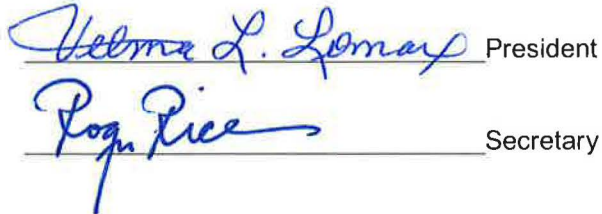 Velma L. Lomax President
Roger Rice Secretary